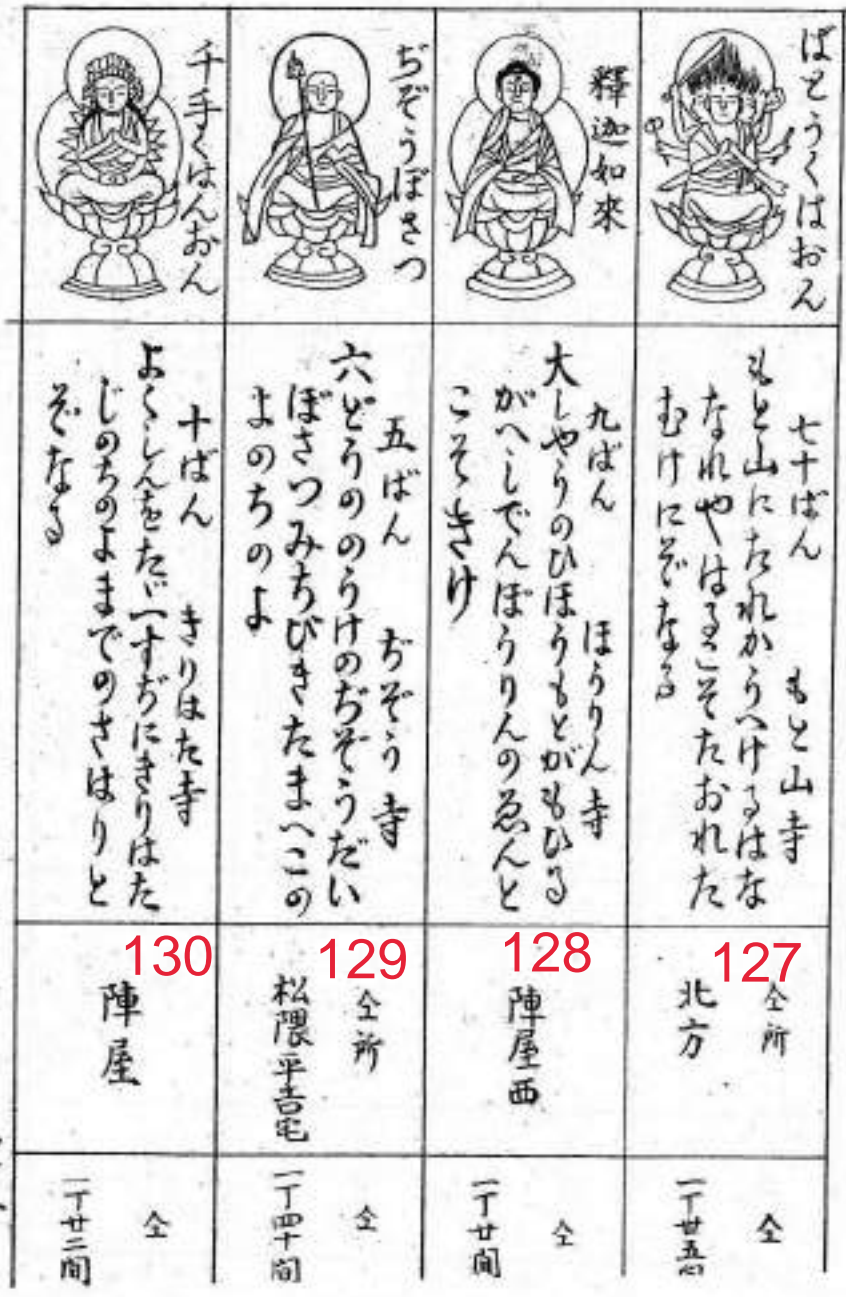 ばとうくはおん
七十ばん　もと山寺
もと山にたれかうへけるはな
なれやはるこそたおれた
むけにぞなる
127
仝所
北方
仝
一丁廿五间
釋迦如來
九ばん　ほうりん寺
大しやうのひほうもとがもひる
がへしでんぼうりんのゑんと
こそきけ
128
陣屋西
仝
一丁廿間
ぢぞうぼさつ
五ばん　ぢぞう寺
六どうののうけのぢぞうだい
ぼさつみちびきたまへこの
よのちのよ
129
仝所
松隈平吉宅
仝
一丁四十間
千手くはんおん
十ばん　きりはた寺
よくしんをたゞ一すぢにきりはた
じのちのよまでのさはりと
ぞなる
130
陣屋
仝
一丁廿二間